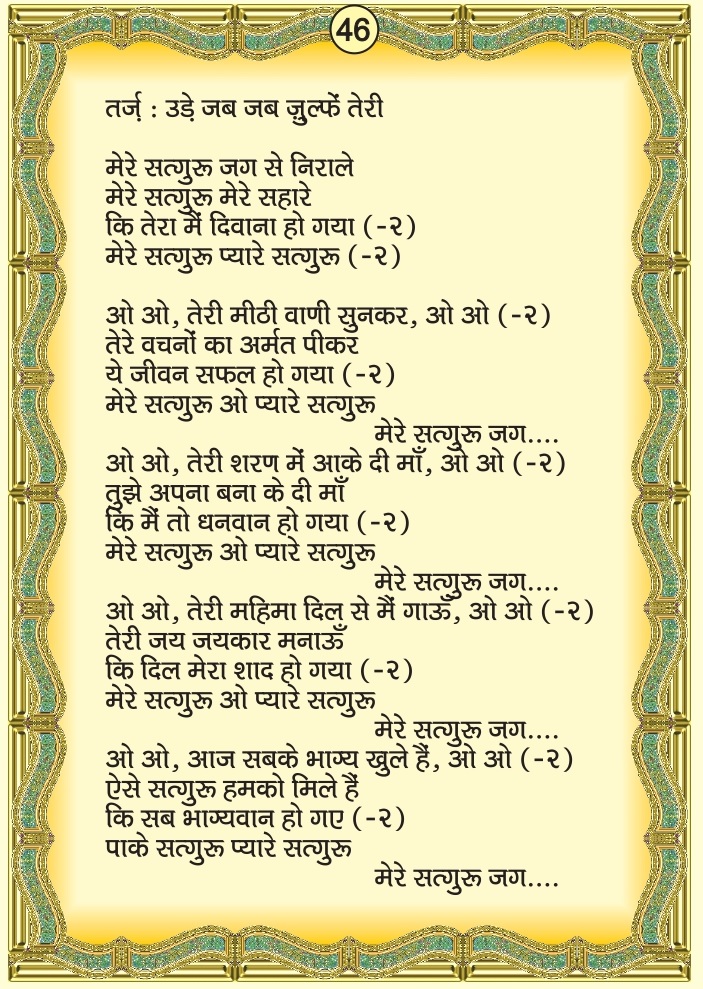 46
तर्ज़ : उड़े जब जब ज़ुल्फें तेरी
मेरे सत्गुरू जग से निराले
मेरे सत्गुरू मेरे सहारे
कि तेरा मैं दिवाना हो गया (-२)
मेरे सत्गुरू प्यारे सत्गुरू (-२)
ओ ओ, तेरी मीठी वाणी सुनकर, ओ ओ (-२)
तेरे वचनों का अर्मत पीकर
ये जीवन सफल हो गया (-२)
मेरे सत्गुरू ओ प्यारे सत्गुरू
मेरे सत्गुरू जग....
ओ ओ, तेरी शरण में आके दी माँ, ओ ओ (-२)
तुझे अपना बना के दी माँ
कि मैं तो धनवान हो गया (-२)
मेरे सत्गुरू ओ प्यारे सत्गुरू
मेरे सत्गुरू जग....
ओ ओ, तेरी महिमा दिल से मैं गाऊँ, ओ ओ (-२)
तेरी जय जयकार मनाऊँ
कि दिल मेरा शाद हो गया (-२)
मेरे सत्गुरू ओ प्यारे सत्गुरू
मेरे सत्गुरू जग....
ओ ओ, आज सबके भाग्य खुले हैं, ओ ओ (-२)
ऐसे सत्गुरू हमको मिले हैं
कि सब भाग्यवान हो गए (-२)
पाके सत्गुरू प्यारे सत्गुरू
मेरे सत्गुरू जग....